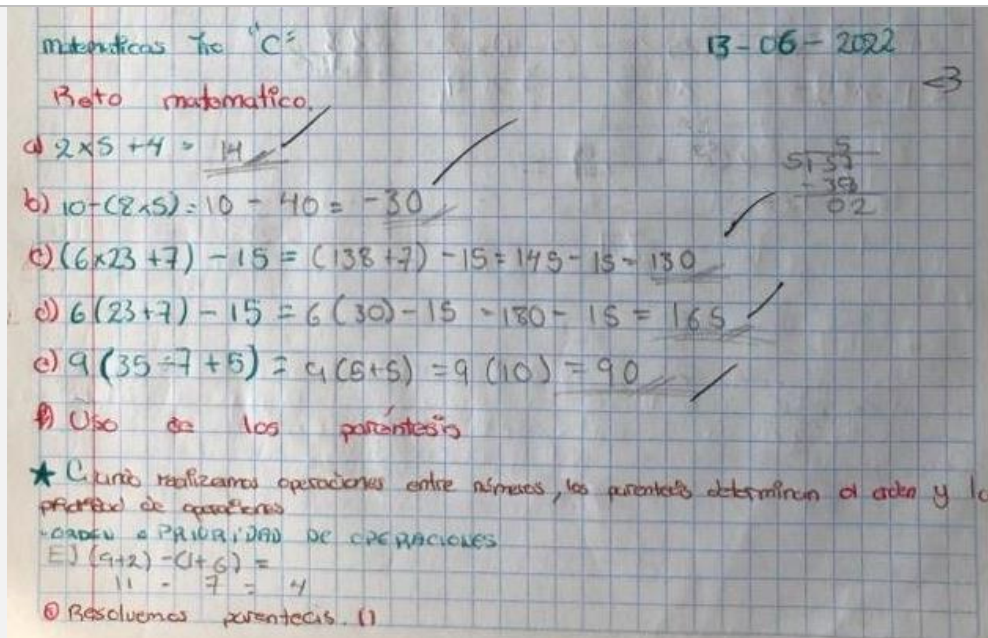 matematicas 1ro "C" 13-06-2022
<3
Reto matematico.
a) 2x5+4 = 14
b) 10-(8x5)=10-40=-30
c) (6x23+7)-15=(138+7)-15=145-15=130
d) 6(23+7)-15=6(30)-15-180-15=165
e) 9(35÷7+5)=9(5+5)=9(10)=90
Uso de los paréntesis
★ realizamos operaciones entre números, los parentesis determinan el orden y la
prioridad de operaciones
-ORDEN o PRIORIDAD DE OPERACIONES
EJ (9+2)-(1+6)=
11 - 7 = 4
Resolvemos parentecis. ()